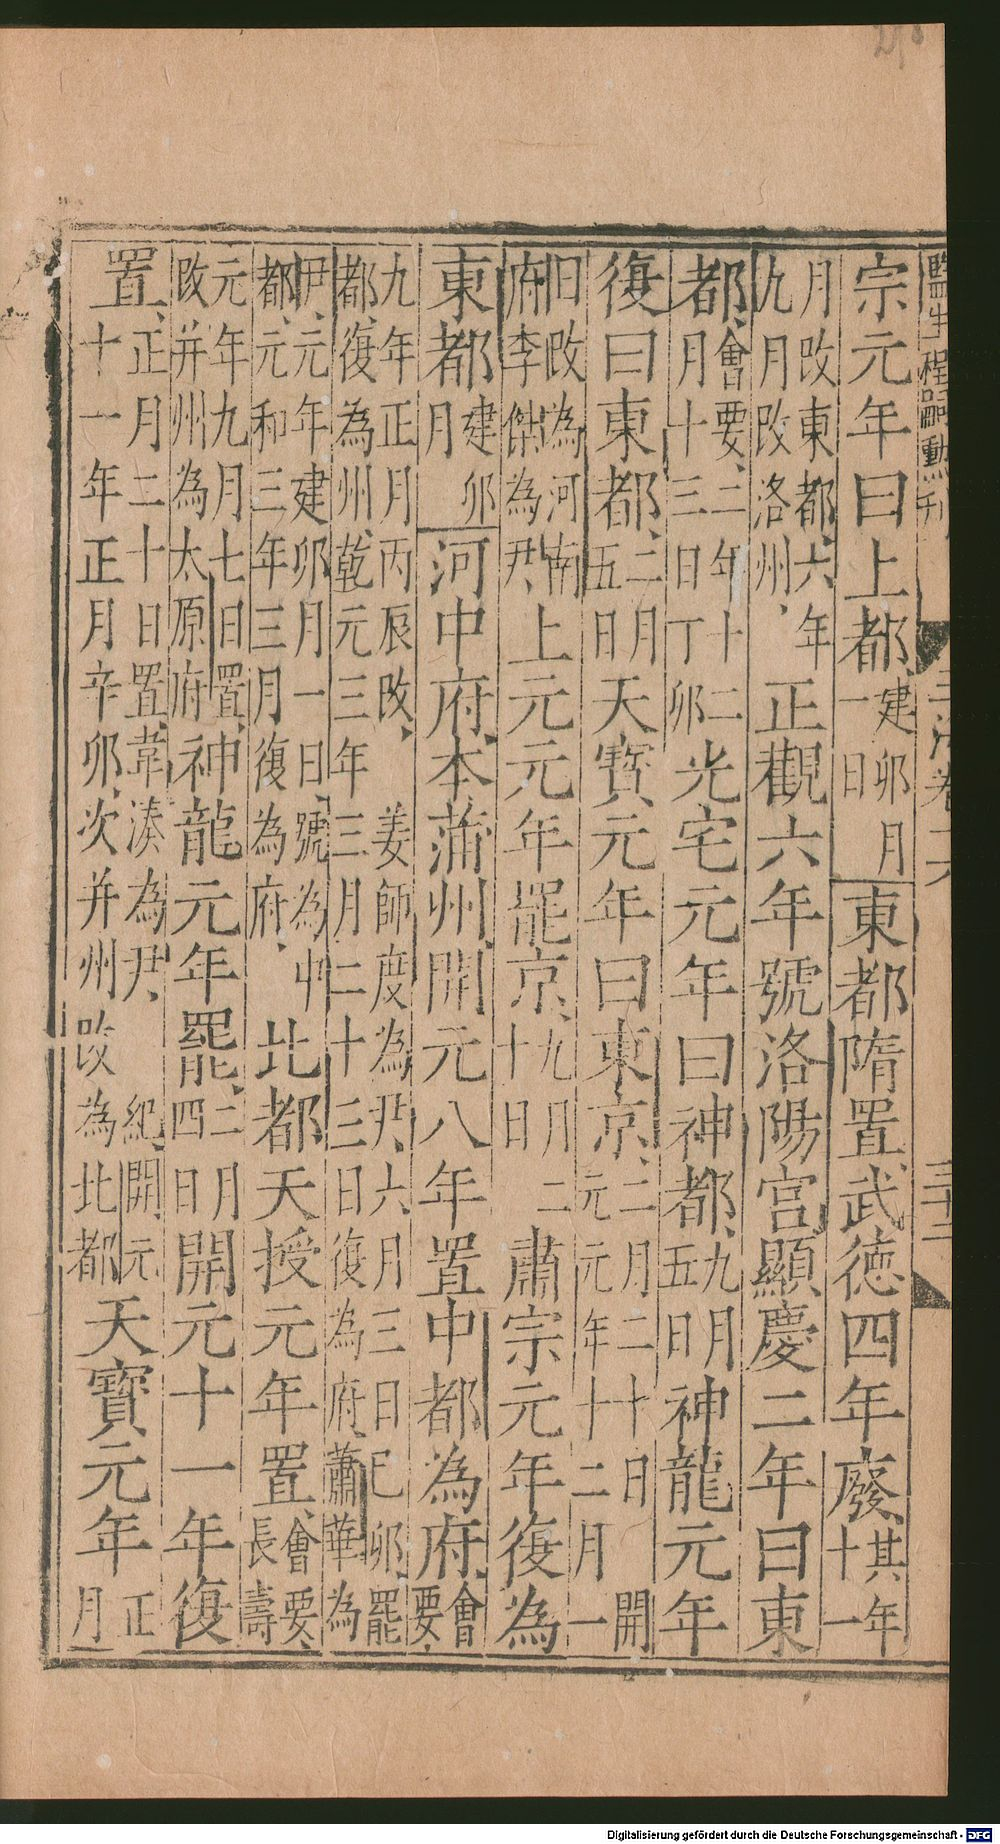 宗元年曰上都建卯月一日東都隋置武德四年廢其年十一
月改東都六年九月改洛州正觀六年號洛陽宮顯慶二年曰東
都會要二年十二月十三日丁卯光宅元年曰神都九月五日神龍元年
復曰東都二月五日天寶元年曰東京二月二十日開元元年十二月一
日改為河南府李傑為尹上元元年罷京九月二十日肅宗元年復為
東都建卯月河中府本蒲州開元八年置中都為府會要
九年正月丙辰改姜師度為尹六月三日己卯罷都復為州乾元三年三月二十三日復為府蕭華為
尹元年建卯月一日號為中都元和三年三月復為府北都天授元年置會要長壽
元年九月七日置改并州為太原府神龍元年罷二月四日開元十一年復
置正月二十日置韋湊為尹紀開元十一年正月辛卯次并州改為北都天寶元年正月
監生程嗣勳刊
三十二
Digitalisierung gefördert durch die Deutsche Forschungsgemeinschaft - DFG